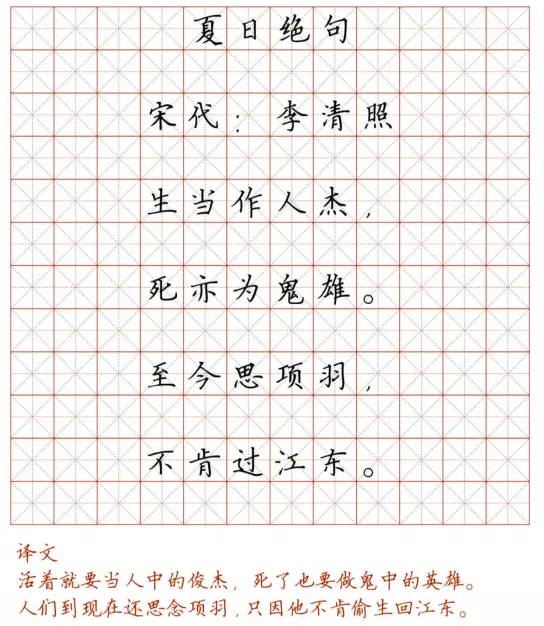 夏日绝句
宋代：李清照
生当作人杰，
死亦为鬼雄。
至今思项羽，
不肯过江东。
译文
活着就要当人中的俊杰，死了也要做鬼中的英雄。
人们到现在还思念项羽，只因他不肯偷生回江东。